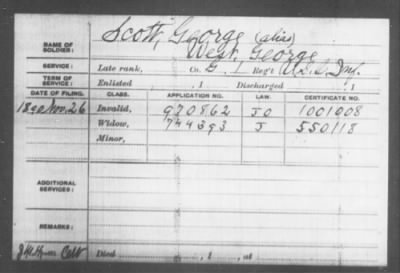 Scott, George (alias)
NAME OF SOLDIER: West, George
SERVICE: Late rank, Co. G, 1 Reg't U.S. Inf.
TERM OF SERVICE: Enlisted , 1 Discharged , 1
DATE OF FILING. CLASS. APPLICATION NO. LAW. CERTIFICATE NO.
1890 Nov. 26 Invalid, 970862 J O 1001008
Widow, 744393 J 550118
Minor,
ADDITIONAL SERVICES:
REMARKS:
Died , 1